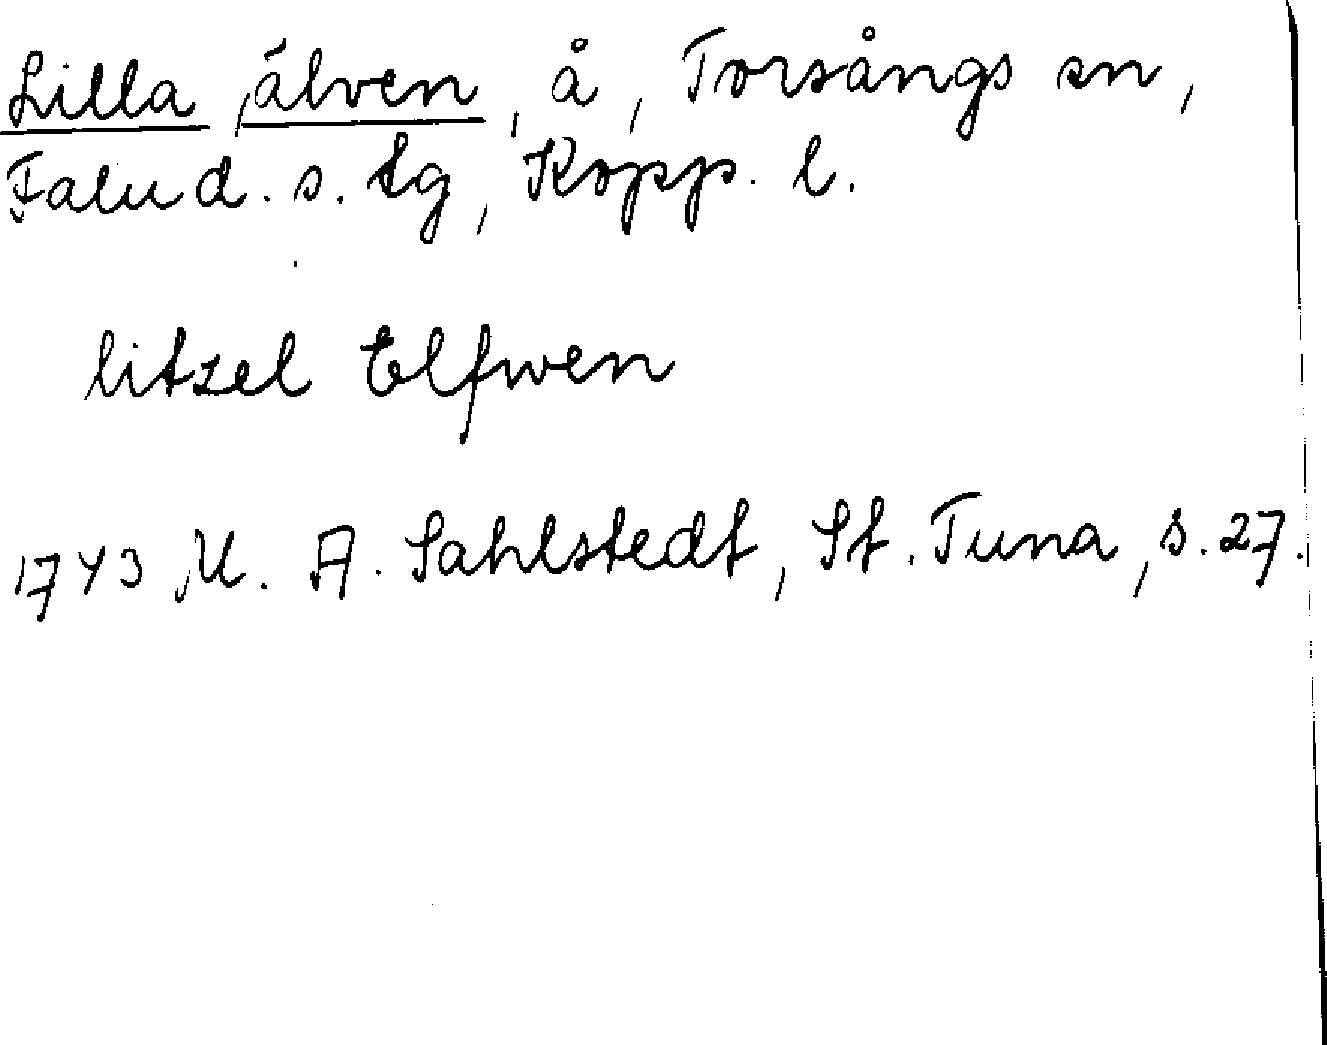 Lilla älven, å, Torsångs sn,
Falu d. s. tg, Kopp. l.
litzel Elfwen
1743 U. A. Sahlstedt, St. Tuna, s. 27.